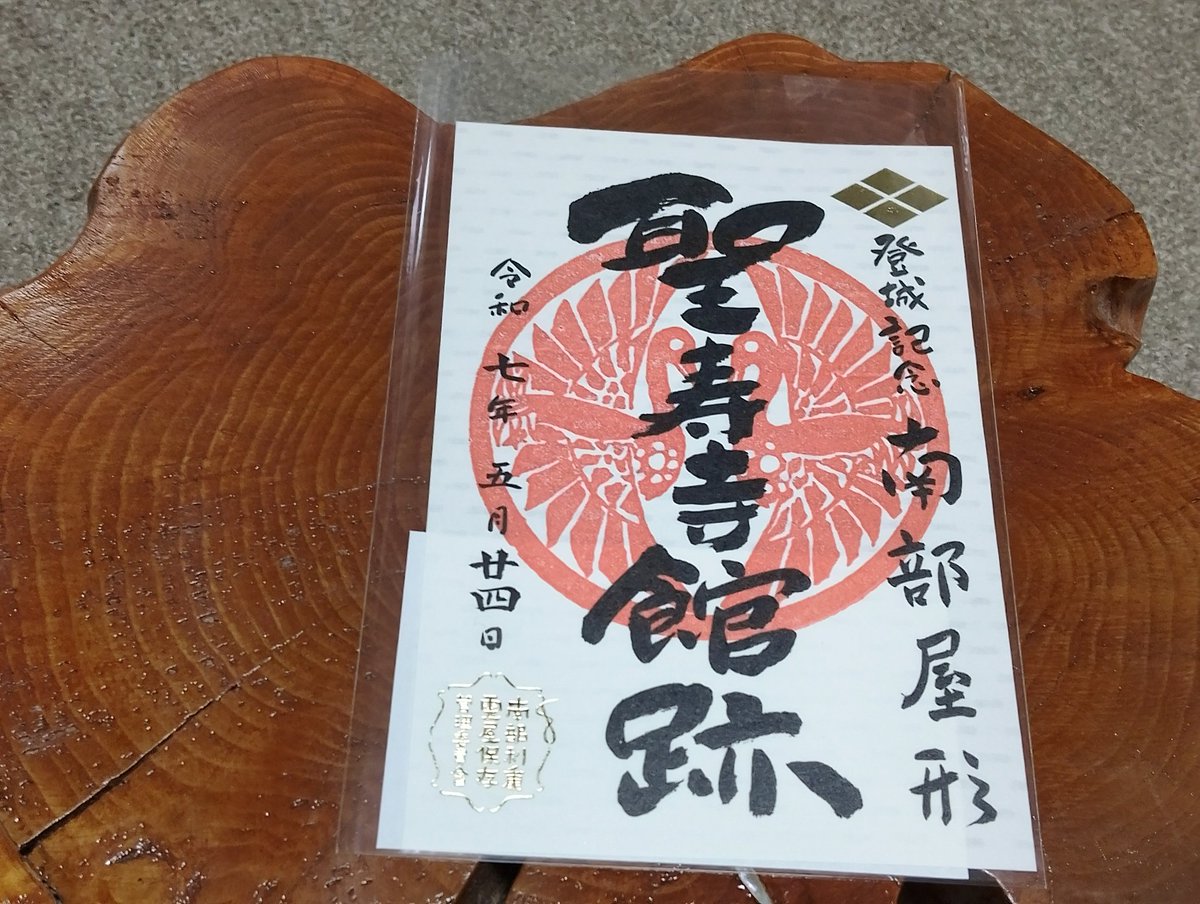 登城記念 南部屋形
聖寿寺館跡
令和 七年 五月 廿四日
南部利康
霊屋保存
管理委員会